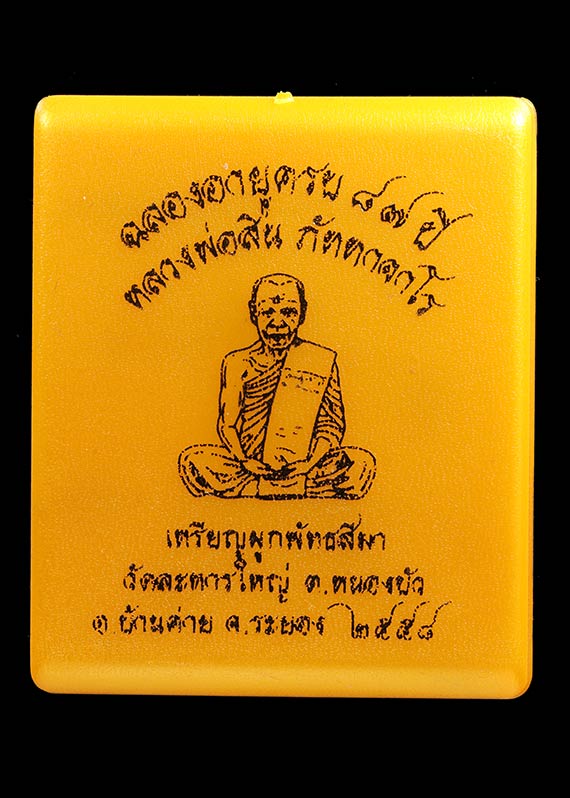 ฉลองอายุครบ ๘๗ ปี
หลวงพ่อสิน ภัททาจาโร
เหรียญผูกพัทธสีมา
วัดละหารใหญ่ ต.หนองบัว
อ.บ้านค่าย จ.ระยอง ๒๕๕๘